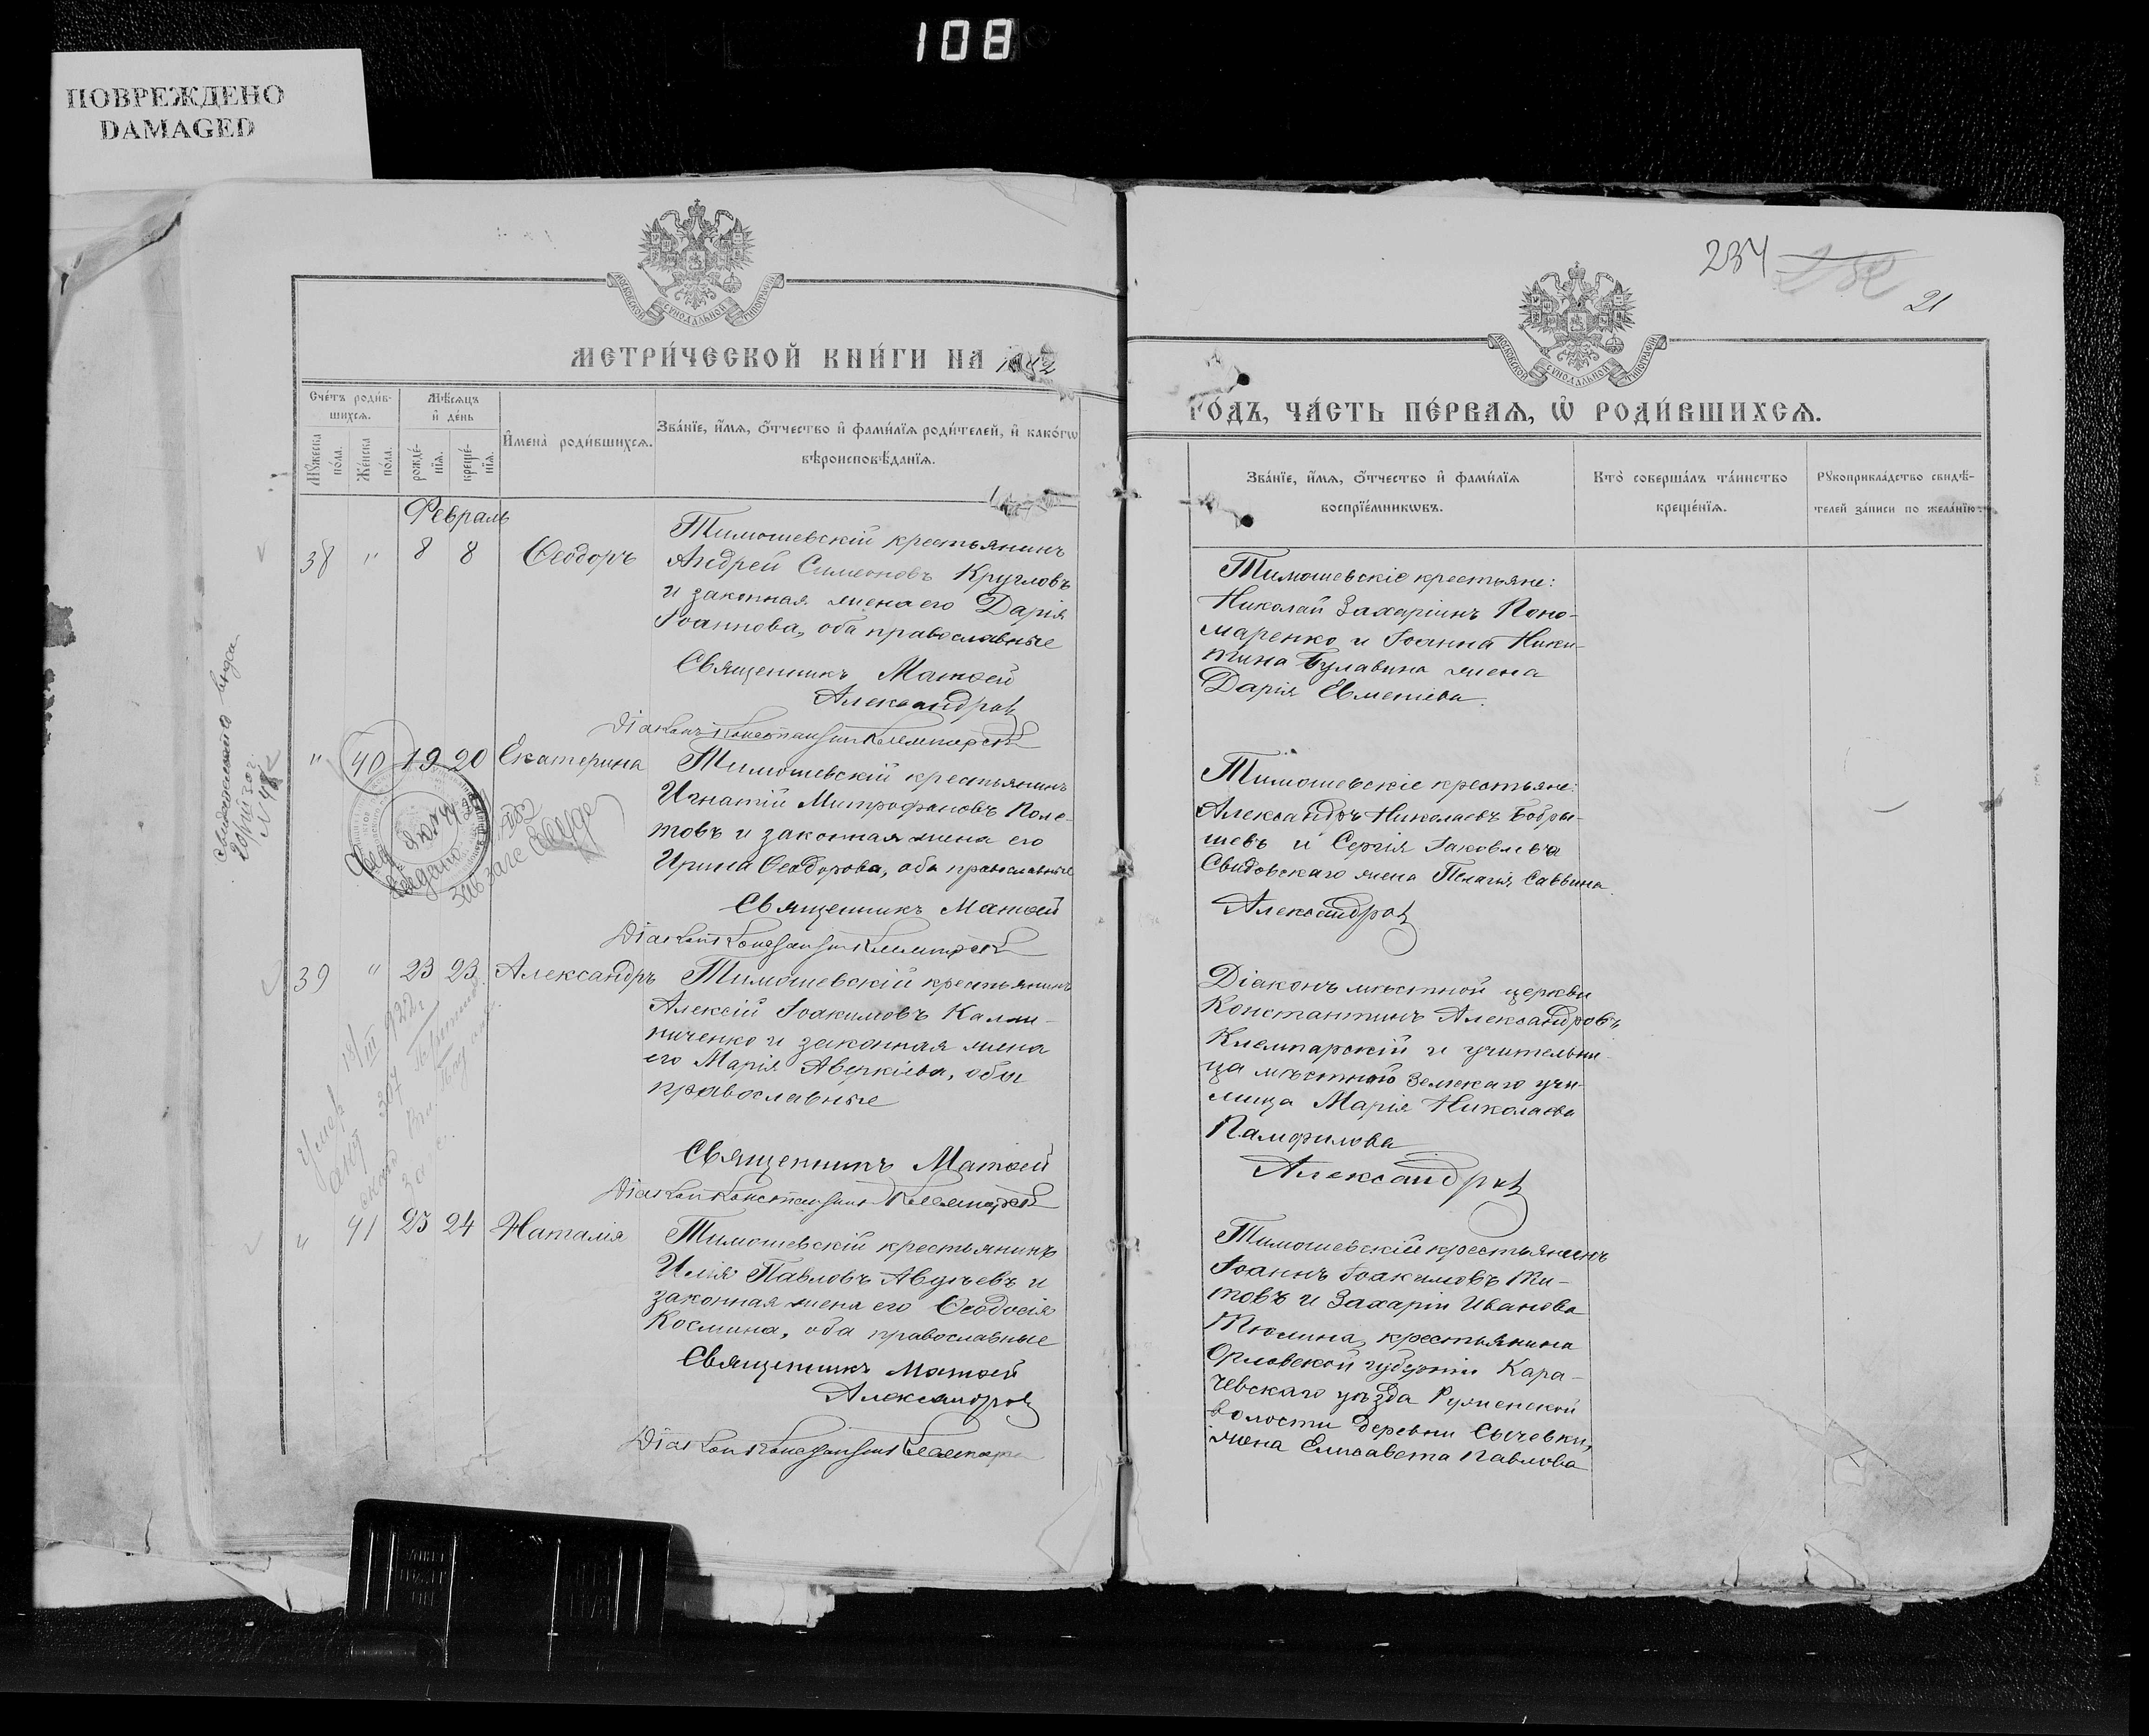 108
ПОВРЕЖДЕНО
DAMAGED
МОСКОВСКОЙ СѴНОДАЛЬНОЙ ТИПОГРАФІИ
МЕТРИ́ЧЕСКОЙ КНИ́ГИ НА
Сче́тъ роди́в-
шихсѧ.
Мꙋ́жеска по́ла.
Же́нска по́ла.
Мѣ́сѧцъ
и҆ де́нь
рожде́-
нїѧ.
креще́-
нїѧ.
И҆мена̀ роди́вшихсѧ.
Зва́нїе, и҆́мѧ, ѻ҆́тчество и҆ фами́лїѧ роди́телей, и҆ како́гѡ
вѣроисповѣ́данїѧ.
Февраль
38 " 8 8 Ѳеодоръ
Тимошевскій крестьянинъ
Андрей Симеоновъ Кругловъ
и законная жена его Дарія
Іоаннова, оба православные
Священникъ Матѳей
Александров
Діаконъ Константин
" 40 19 20 Екатерина
Тимошевскій крестьянинъ
Игнатій Митрофановъ Поле-
товъ и законная жена его
Ирина Ѳеодорова, оба православные
Священникъ Матѳей
Діаконъ Константин
39 " 23 23 Александръ
Тимошевскій крестьянинъ
Алексій Іоакимовъ Кали-
ниченко и законная жена
его Марія Аверкіева, оба
православные
Священникъ Матѳей
Діаконъ Константин
" 41 23 24 Наталія
Тимошевскій крестьянинъ
Илія Павловъ Авдѣевъ и
законная жена его Ѳеодосія
Космина, оба православные
Священникъ Матѳей
Александров
Діаконъ Константин
20/VIII 30 г.
N 48
Умер 18/III 922 г.
акт 307
234
21
МОСКОВСКОЙ СѴНОДАЛЬНОЙ ТИПОГРАФІИ
ГО́ДЪ, ЧА́СТЬ ПЕ́РВАѦ, Ѽ РОДИ́ВШИХСѦ.
Зва́нїе, и҆́мѧ, ѻ҆́тчество и҆ фами́лїѧ
воспрїе́мникѡвъ.
Кто̀ соверша́лъ та́инство
креще́нїѧ.
Рꙋкоприкла́дство свидѣ́-
телей за́писи по жела́нїю.
Тимошевскіе крестьяне:
Николай Захаріинъ Поно-
маренко и Іоанна Ники-
тина Булавина жена
Дарія Евменіева.
Тимошевскіе крестьяне:
Александръ Николаевъ Бобры-
шевъ и Сергія Іаковлева
Свидовскаго жена Пелагія Саввина.
Александров
Діаконъ мѣстной церкви
Константинъ Александровъ
Клемпарскій и учительни-
ца мѣстнаго земскаго учи-
лища Марія Николаева
Памфилова
Александров
Тимошевскій крестьянинъ
Іоаннъ Іоакимовъ Ти-
товъ и Захаріи Иванова
Тюлина, крестьянина
Орловской губерніи Кара-
чевскаго уѣзда Руженской
волости деревни Сычевки,
жена Елисавета Павлова